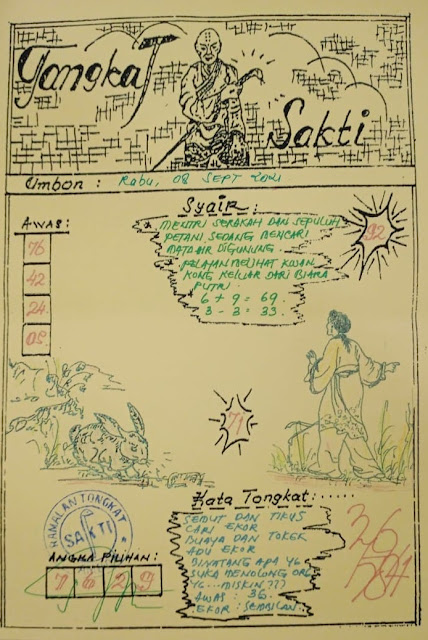 Tongkat
Sakti
Umbon : Rabu, 08 SEPT 2021
Syair :
AWAS :
76
42
24
09
MENTRI SERAKAH DAN SEPULUH
PETANI SEDANG MENCARI
MATA AIR DIGUNUNG.
PELAJAN MELIHAT KWAN
KONG KELUAR DARI BIARA
PUTRI.
6 + 9 = 69.
3 - 3 = 33.
92
71
Kata Tongkat:......
SEMUT DAN TIKUS
CARI EKOR
BUAYA DAN TOKEK
ADU EKOR
BINATANG APA YG
SUKA MENOLONG ORG
YG...MISKIN ???
AWAS : 36.
EKOR : SEMBILAN.
RAMALAN TONGKAT
SAKTI
ANGKA PILIHAN:
7 6 2 9
36